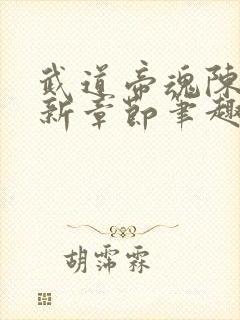 武道帝魂陳
新章節筆趣
胡霈霖